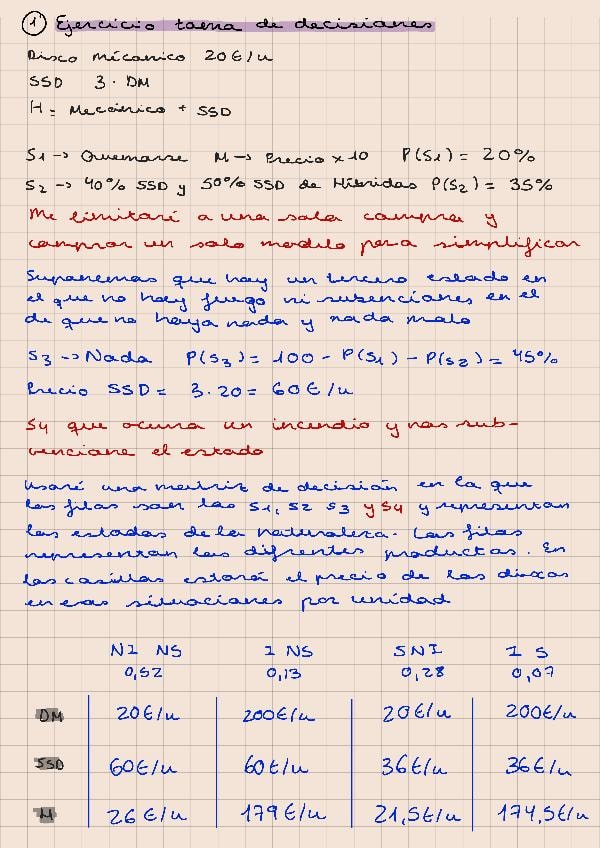 ① Ejercicio toma de decisiones
Disco mécanico 20€/u
SSD 3 · DM
H = Mecánico + SSD
S1 -> Quemarse M -> Precio x 10 P(S1) = 20%
S2 -> 40% SSD y 50% SSD de Híbridas P(S2) = 35%
Me limitaré a una sola compra y
comprar un solo modelo para simplificar
Suponemos que hay un tercero estado en
el que no hay fuego ni subenciones en el
de que no haya nada y nada malo
S3 -> Nada P(S3) = 100 - P(S1) - P(S2) = 45%
Precio SSD = 3 · 20 = 60€/u
S4 que ocurra un incendio y nos sub-
vencione el estado
Usaré una matriz de decisión en la que
las filas son las S1, S2 S3 y S4 y representan
los estados de la naturaleza. Las filas
representan los difrentes productos. En
las casillas estará el precio de los discos
en esas situaciones por unidad
NI NS I NS S NI I S
0,52 0,13 0,28 0,07
DM 20€/u 200€/u 20€/u 200€/u
SSD 60€/u 60€/u 36€/u 36€/u
H 26€/u 179€/u 21,5€/u 174,5€/u